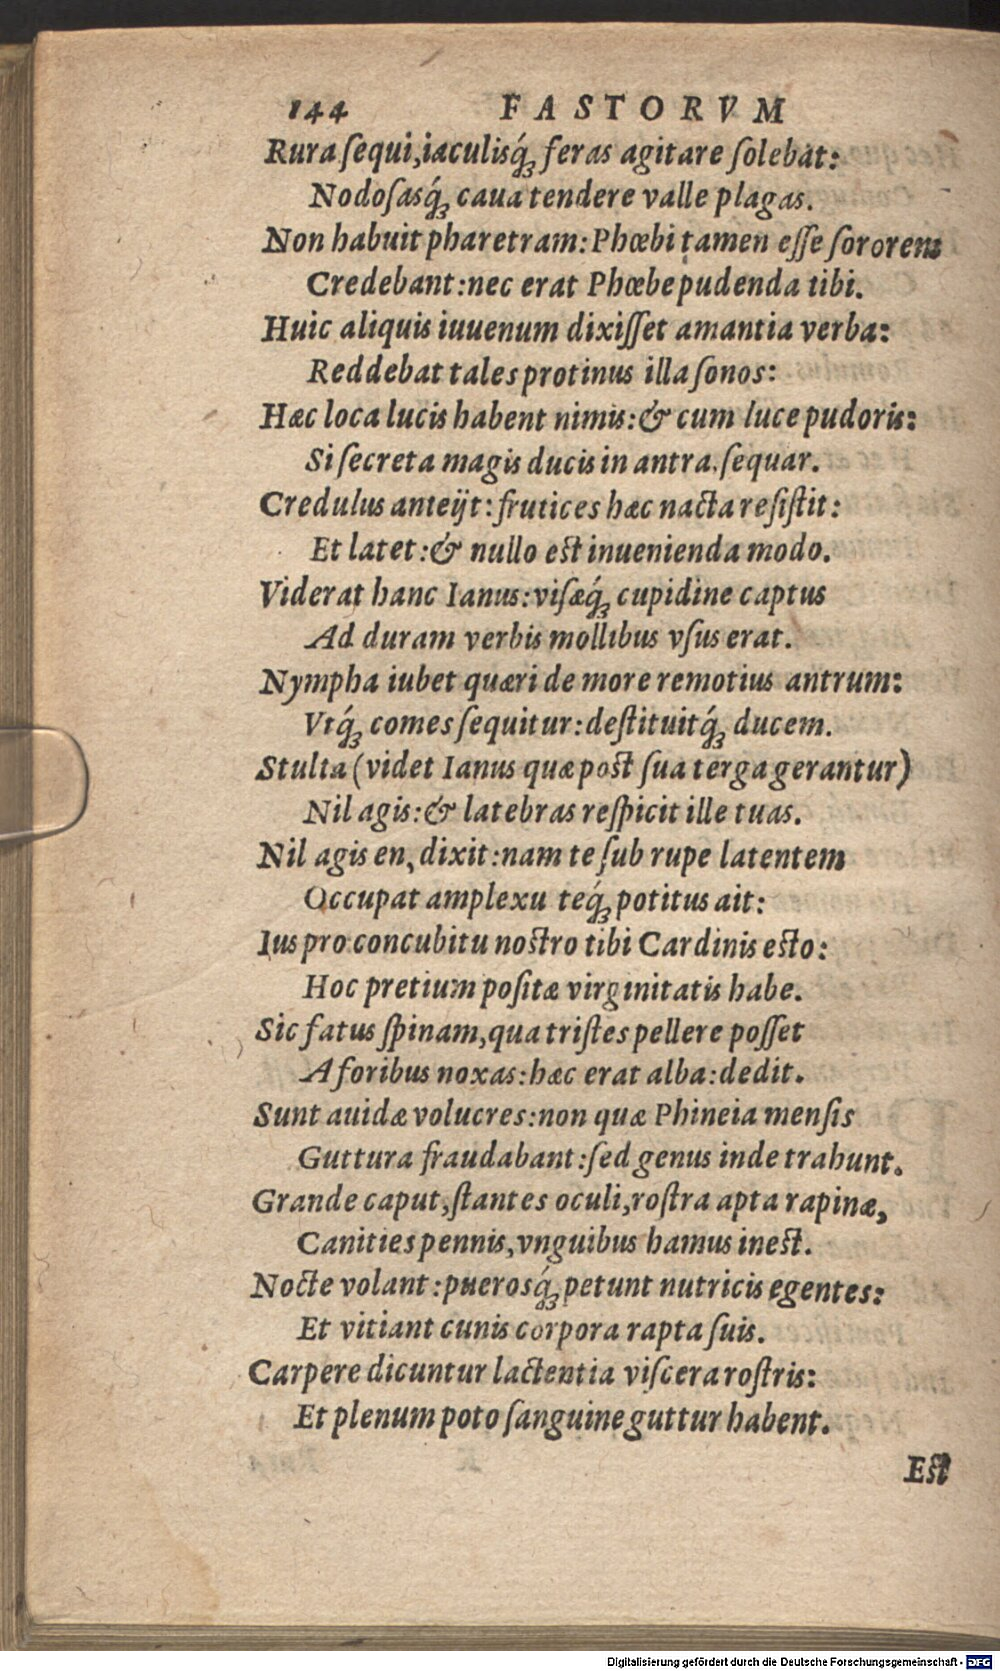 144 FASTORVM
Rura ſequi, iaculisq́; feras agitare ſolebat:
Nodoſasq́; caua tendere valle plagas.
Non habuit pharetram: Phœbi tamen eſſe ſororem
Credebant: nec erat Phœbe pudenda tibi.
Huic aliquis iuuenum dixiſſet amantia verba:
Reddebat tales protinus illa ſonos:
Hæc loca lucis habent nimis: & cum luce pudoris:
Si ſecreta magis ducis in antra. ſequar.
Credulus anteijt: frutices hæc nacta reſiſtit:
Et latet: & nullo est inuenienda modo.
Viderat hanc Ianus: viſæq́; cupidine captus
Ad duram verbis mollibus vſus erat.
Nympha iubet quæri de more remotius antrum:
Vtq́; comes ſequitur: deſtituitq́; ducem.
Stulta (videt Ianus quæ post ſua terga gerantur)
Nil agis: & latebras reſpicit ille tuas.
Nil agis en, dixit: nam te ſub rupe latentem
Occupat amplexu teq́; potitus ait:
Ius pro concubitu nostro tibi Cardinis esto:
Hoc pretium poſitæ virginitatis habe.
Sic fatus ſpinam, qua triſtes pellere poſſet
A foribus noxas: hæc erat alba: dedit.
Sunt auidæ volucres: non quæ Phineia menſis
Guttura fraudabant: ſed genus inde trahunt.
Grande caput, ſtantes oculi, roſtra apta rapinæ,
Canities pennis, vnguibus hamus inest.
Nocte volant: puerosq́; petunt nutricis egentes:
Et vitiant cunis corpora rapta ſuis.
Carpere dicuntur lactentia viſcera roſtris:
Et plenum poto ſanguine guttur habent.
Est
Digitalisierung gefördert durch die Deutsche Forschungsgemeinschaft - DFG